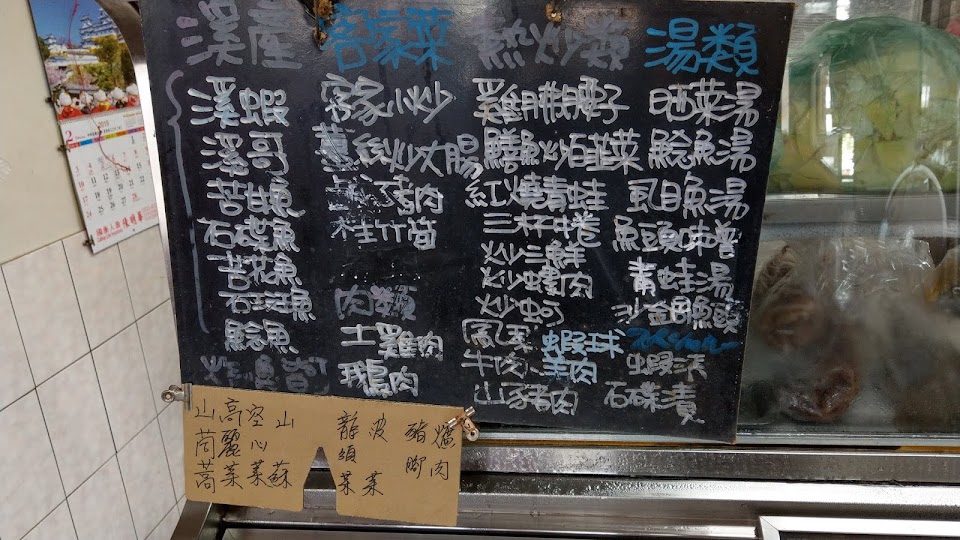 溪產
溪蝦
溪哥
苦甘魚
石碟魚
苦花魚
石斑魚
鯰魚
客家菜
客家小炒
薑絲炒大腸
豬肉
桂竹筍
肉類
土雞肉
鵝肉
熱炒類
雞腿子
鱔魚炒韭菜
紅燒青蛙
三杯中卷
炒三鮮
炒螺肉
炒蚵
鳳梨蝦球
牛肉 羊肉
山豬肉
湯類
晒菜湯
鯰魚湯
虱目魚湯
魚頭味噌
青蛙湯
沙鍋魚頭
蝦
石碟
山茼蒿
高麗菜
空心菜
山蘇
龍須菜
波菜
豬腳
爌肉
2
2019